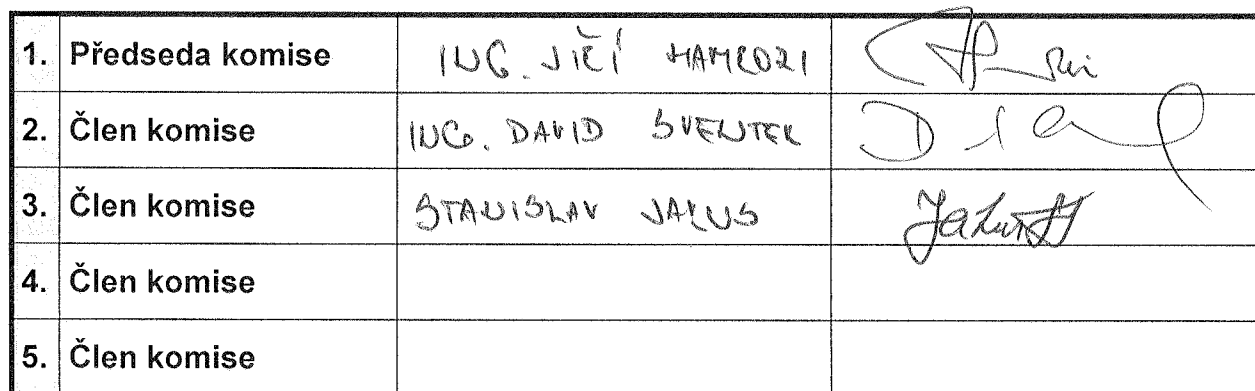 1. Předseda komise ING. JIŘÍ HAMROZI
2. Člen komise ING. DAVID SVENTEK
3. Člen komise STANISLAV JAKUS
4. Člen komise
5. Člen komise